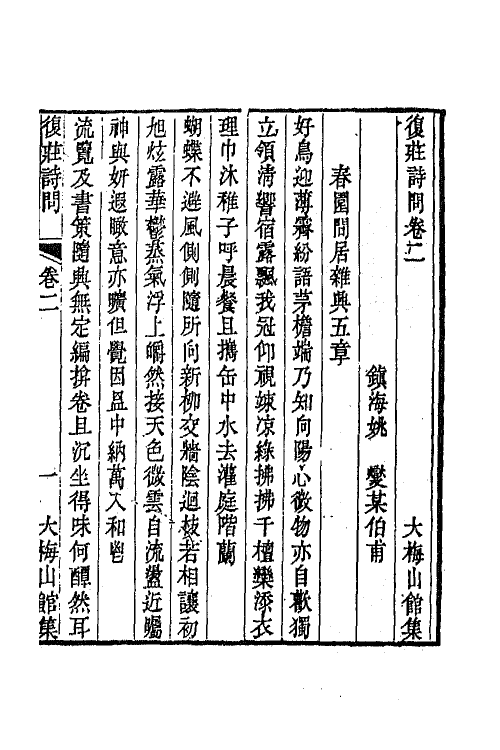 復莊詩問卷二　大梅山館集
鎮海姚　燮某伯甫
春園閒居雜興五章
好鳥迎薄霽紛語茅檐端乃知向陽心微物亦自歡獨
立領淸響宿露飄我冠仰視竦凉綠拂拂千檀欒添衣
理巾沐稚子呼晨餐且攜缶中水去灌庭階蘭
蝴蝶不避風側側隨所向新柳交牆陰迴枝若相讓初
旭炫露華鬱蒸氣浮上皭然接天色微雲自流盪近矚
神與妍遐瞰意亦曠但覺因昷中納萬入和鬯
流覽及書策隨興無定編揜卷且沉坐得味何醰然耳
復莊詩問　卷二　一　大梅山館集